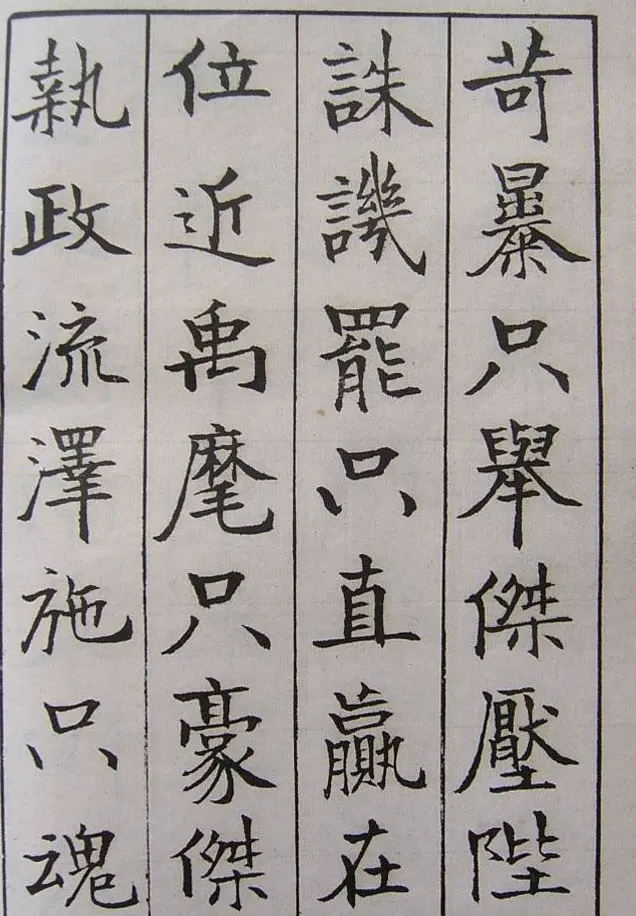 苛暴只舉傑壓陛
誅譏罷只直贏在
位近禹麾只豪傑
執政流澤施只魂